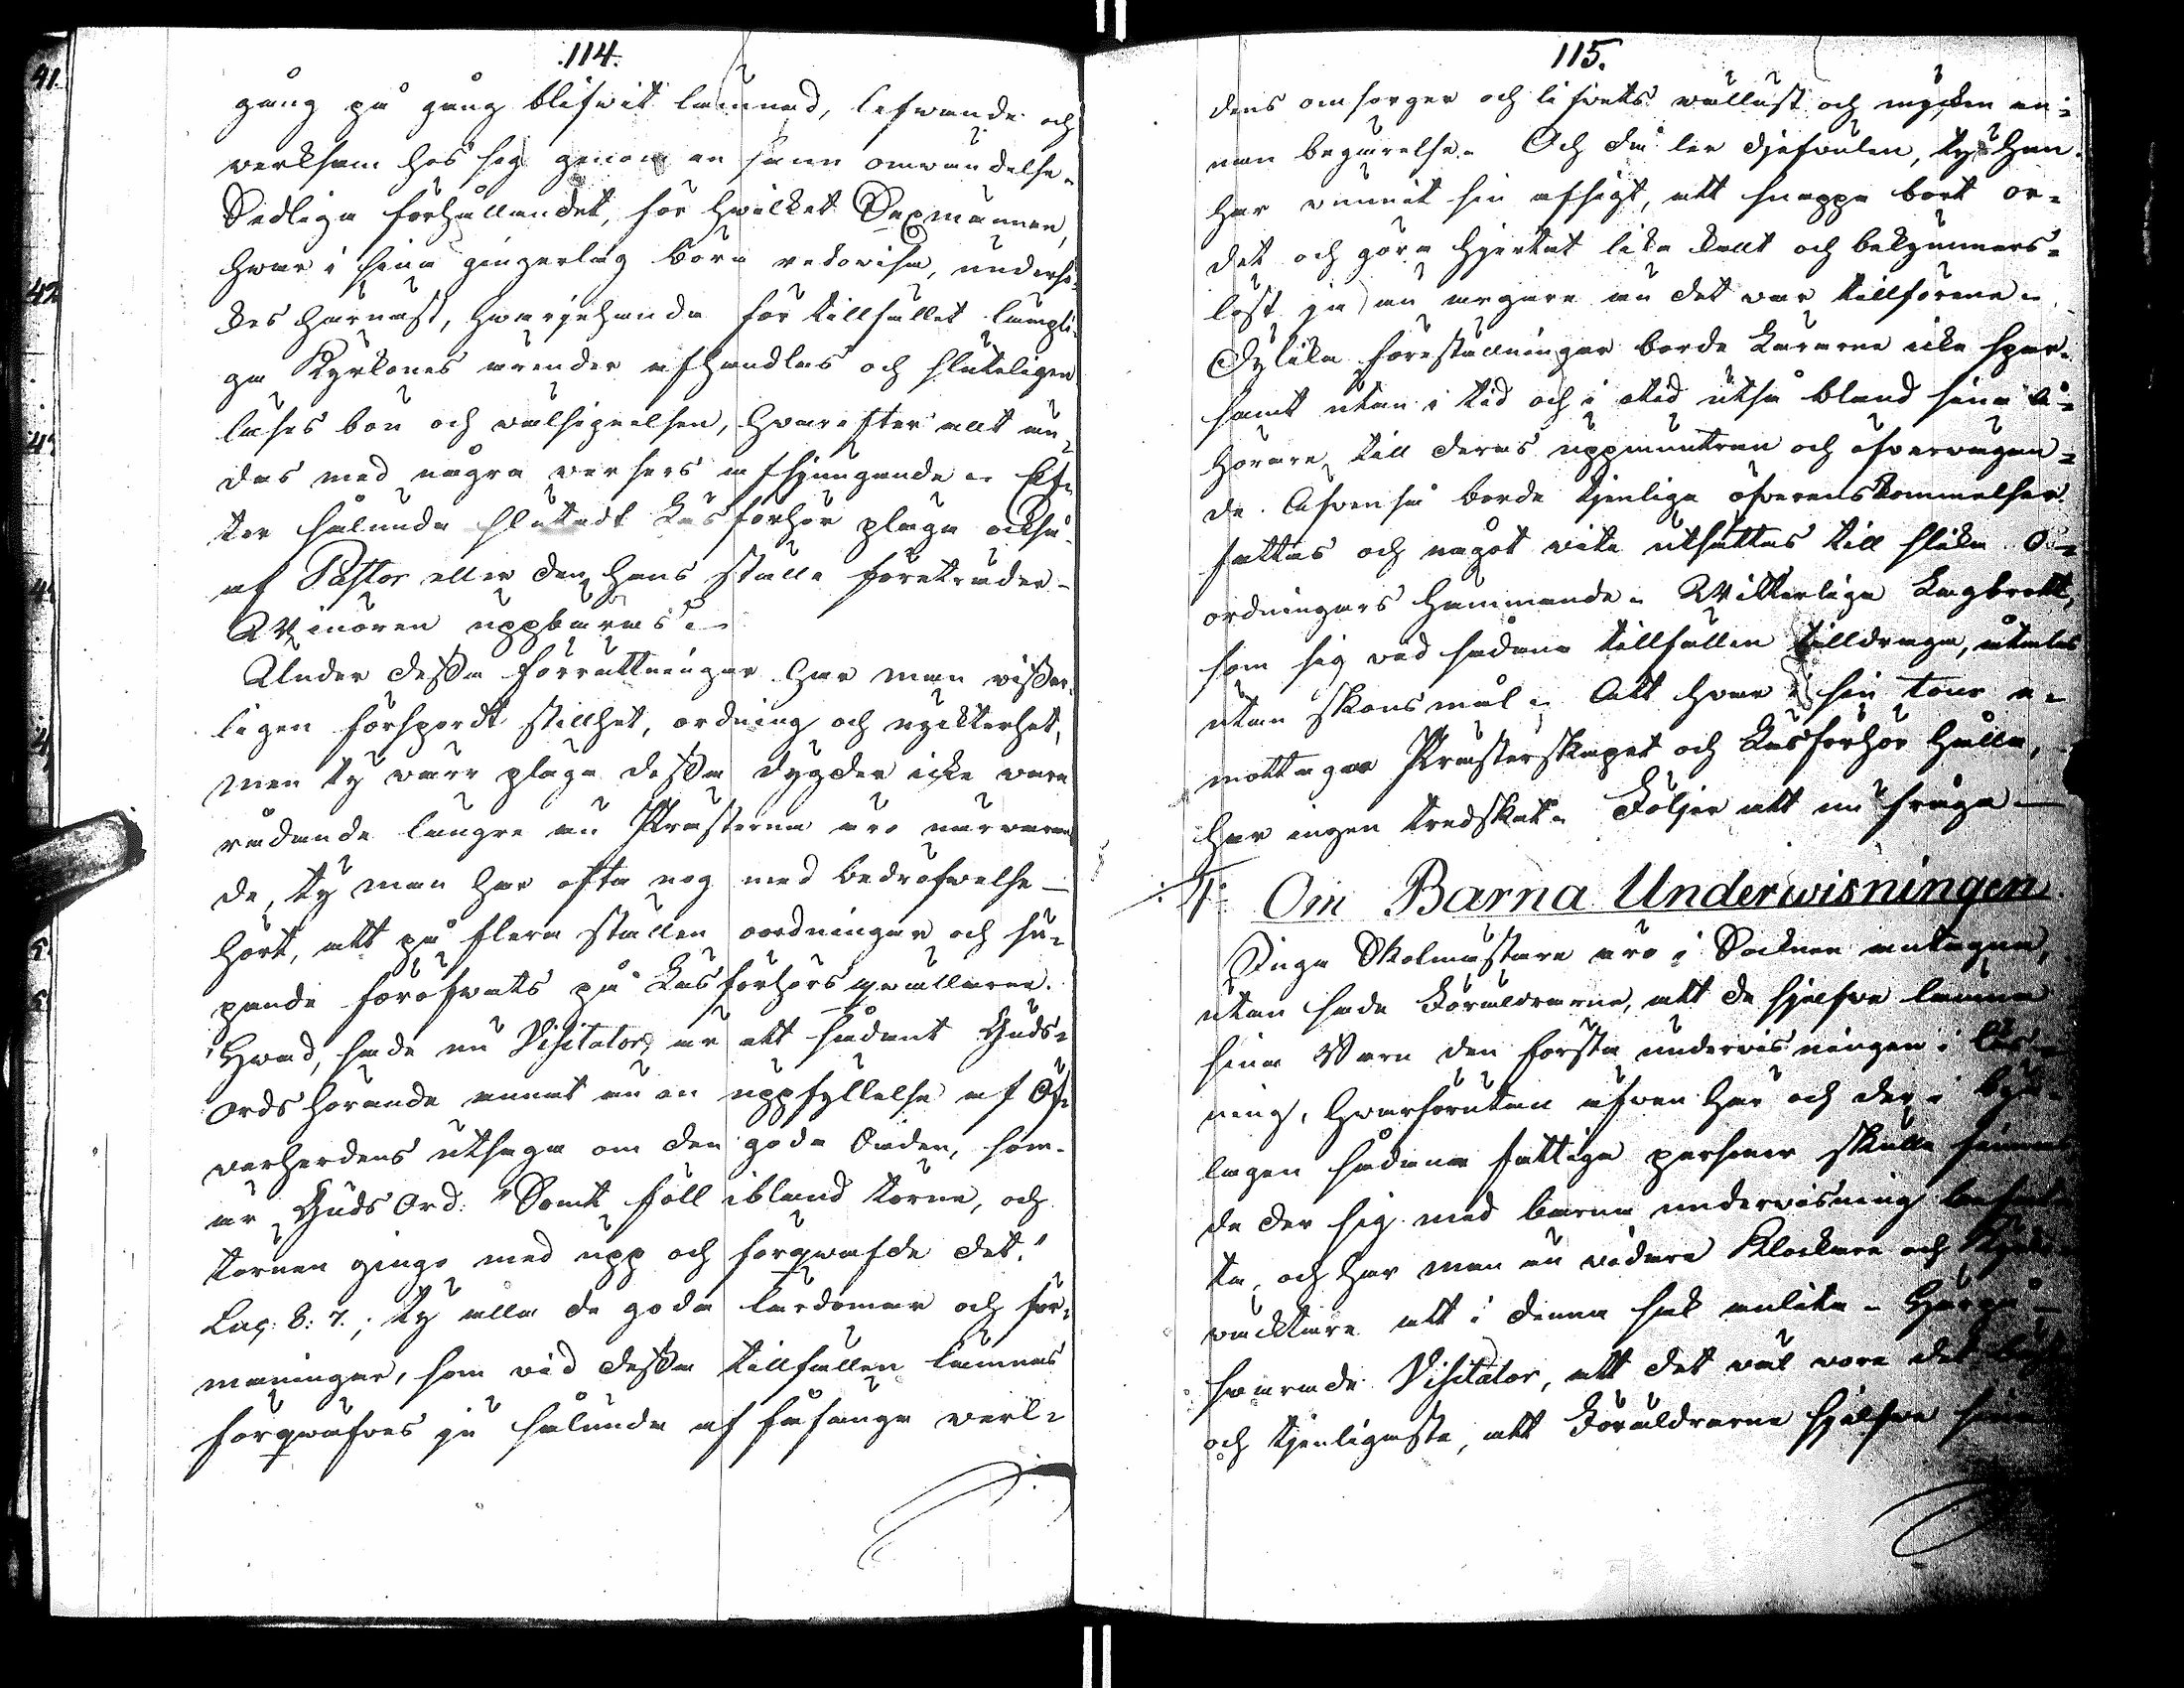 114.
gång på gång blifwit lämnad, lefwande och
verksam hos sig genom en sann omvändelse.
Sedliga förhållandet, för hwilket Sexmännen,
hwar i sina gingerlag böra redovisa, underso-
kes härnäst, hwarjehanda för tillfället lämpli-
ga Kyrkones ärender afhandlas och sluteligen
läses bön och välsignelsen, hvarefter allt än-
das med några versers afsjungande. Ef-
ter sålunda slutadt Läsförhör pläga också
af Pastor eller den hans ställe företräder
Winören uppbäras.
Under desse förrättningar har man visser-
ligen försport stillhet, ordning och nykterhet,
men ty värr pläga dessa dygder icke vara
rådande längre än Prästerna äro närvaran-
de, ty man har ofta nog med bedröfwelse
hört, att på flera ställen oordningar och su-
pande föröfwats på Läsförhörs qvällarne.
Hwad, sade nu Visitator, är att sådant Guds-
ords hörande annat än en uppfyllelse af Öf-
verherdens utsago om den goda Säden, som
är Guds Ord: "Somt föll ibland törne, och
törnen gingo med upp och förqwafde det."
Luc: 8: 7.; ty alla de goda lärdomar och för-
maningar, som vid dessa tillfällen lämnas
förqwäfves ju sålunda af fåfänga verl-
115.
dens omsorger och lifvets wällust och mycken an-
nan begärelse. Och då ler djefvulen, ty han
har vunnit sin afsigt, att snappa bort or-
det och göra hjertat lika kallt och bekymmers-
löst ja än argare än det var tillförene.
Dylika föreställningar borde Lärarne icke spar-
samt utan i tid och i otid utså bland sina å-
hörare till deras uppmuntran och öfvervägan-
de. Äfven så borde tjenliga öfverenskommelser
fattas och något vite utsättas till slika o-
ordningars hämmande. Witterliga Lagbrott,
som sig vid sådana tillfällen tilldraga, åtalas
utan skonsmål. Att hvar i sin tour e-
mottaga Prästerskapet och Läsförhör hålla,
har ingen tredskat. Följer att nu fråga
4: Om Barna Underwisningen
Inga Skolmästare äro i Socknen antagna,
utan sade Föräldrarne, att de sjelfve lämna
sina Barn den första undervisningen i Läs-
ning, hvarförutan äfven här och der i Bya-
lagen sådana fattiga personer skulle finnas
de der sig med barna undervisning
ta, och har man än vidare Klockare och
väcktare att i denna sak anlita. Härpå
svarade Visitator, att det väl vore det
och tjenligaste, att Föräldrarne sjelfve sina